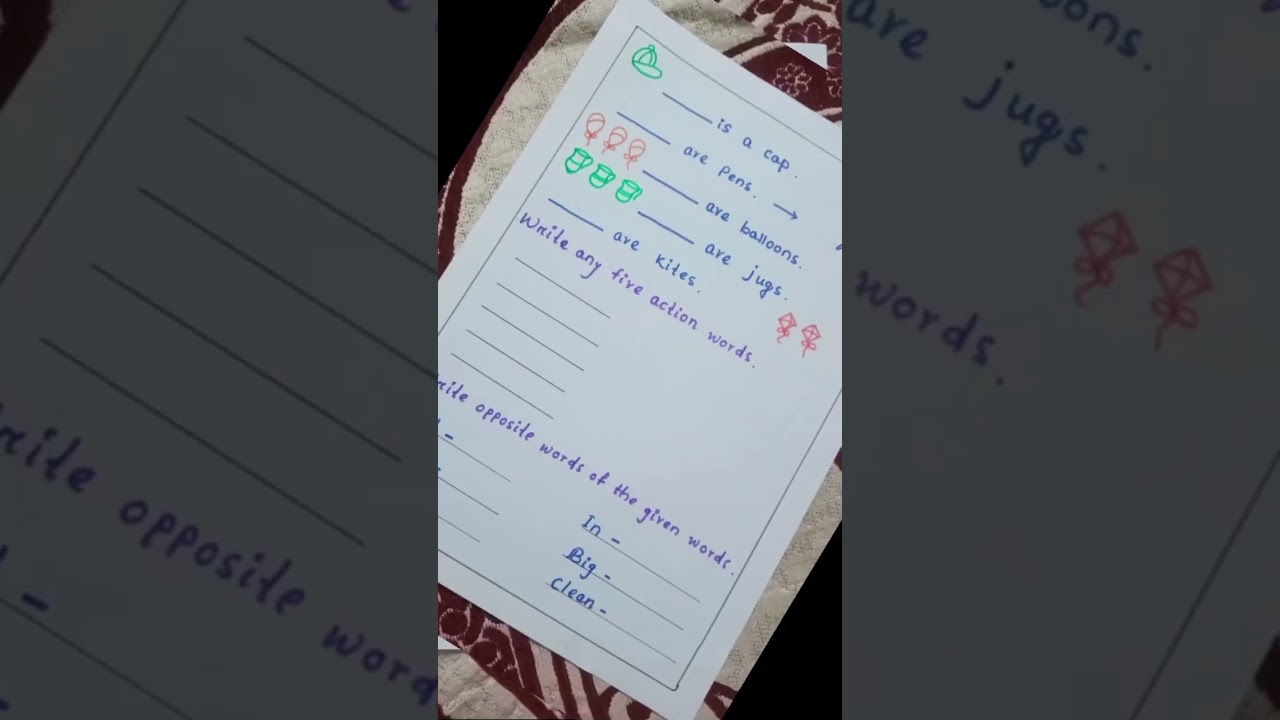 is a cap.
are pens.
are balloons.
are jugs.
are kites.
Write any five action words.
opposite words of the given words.
In -
Big -
Clean -